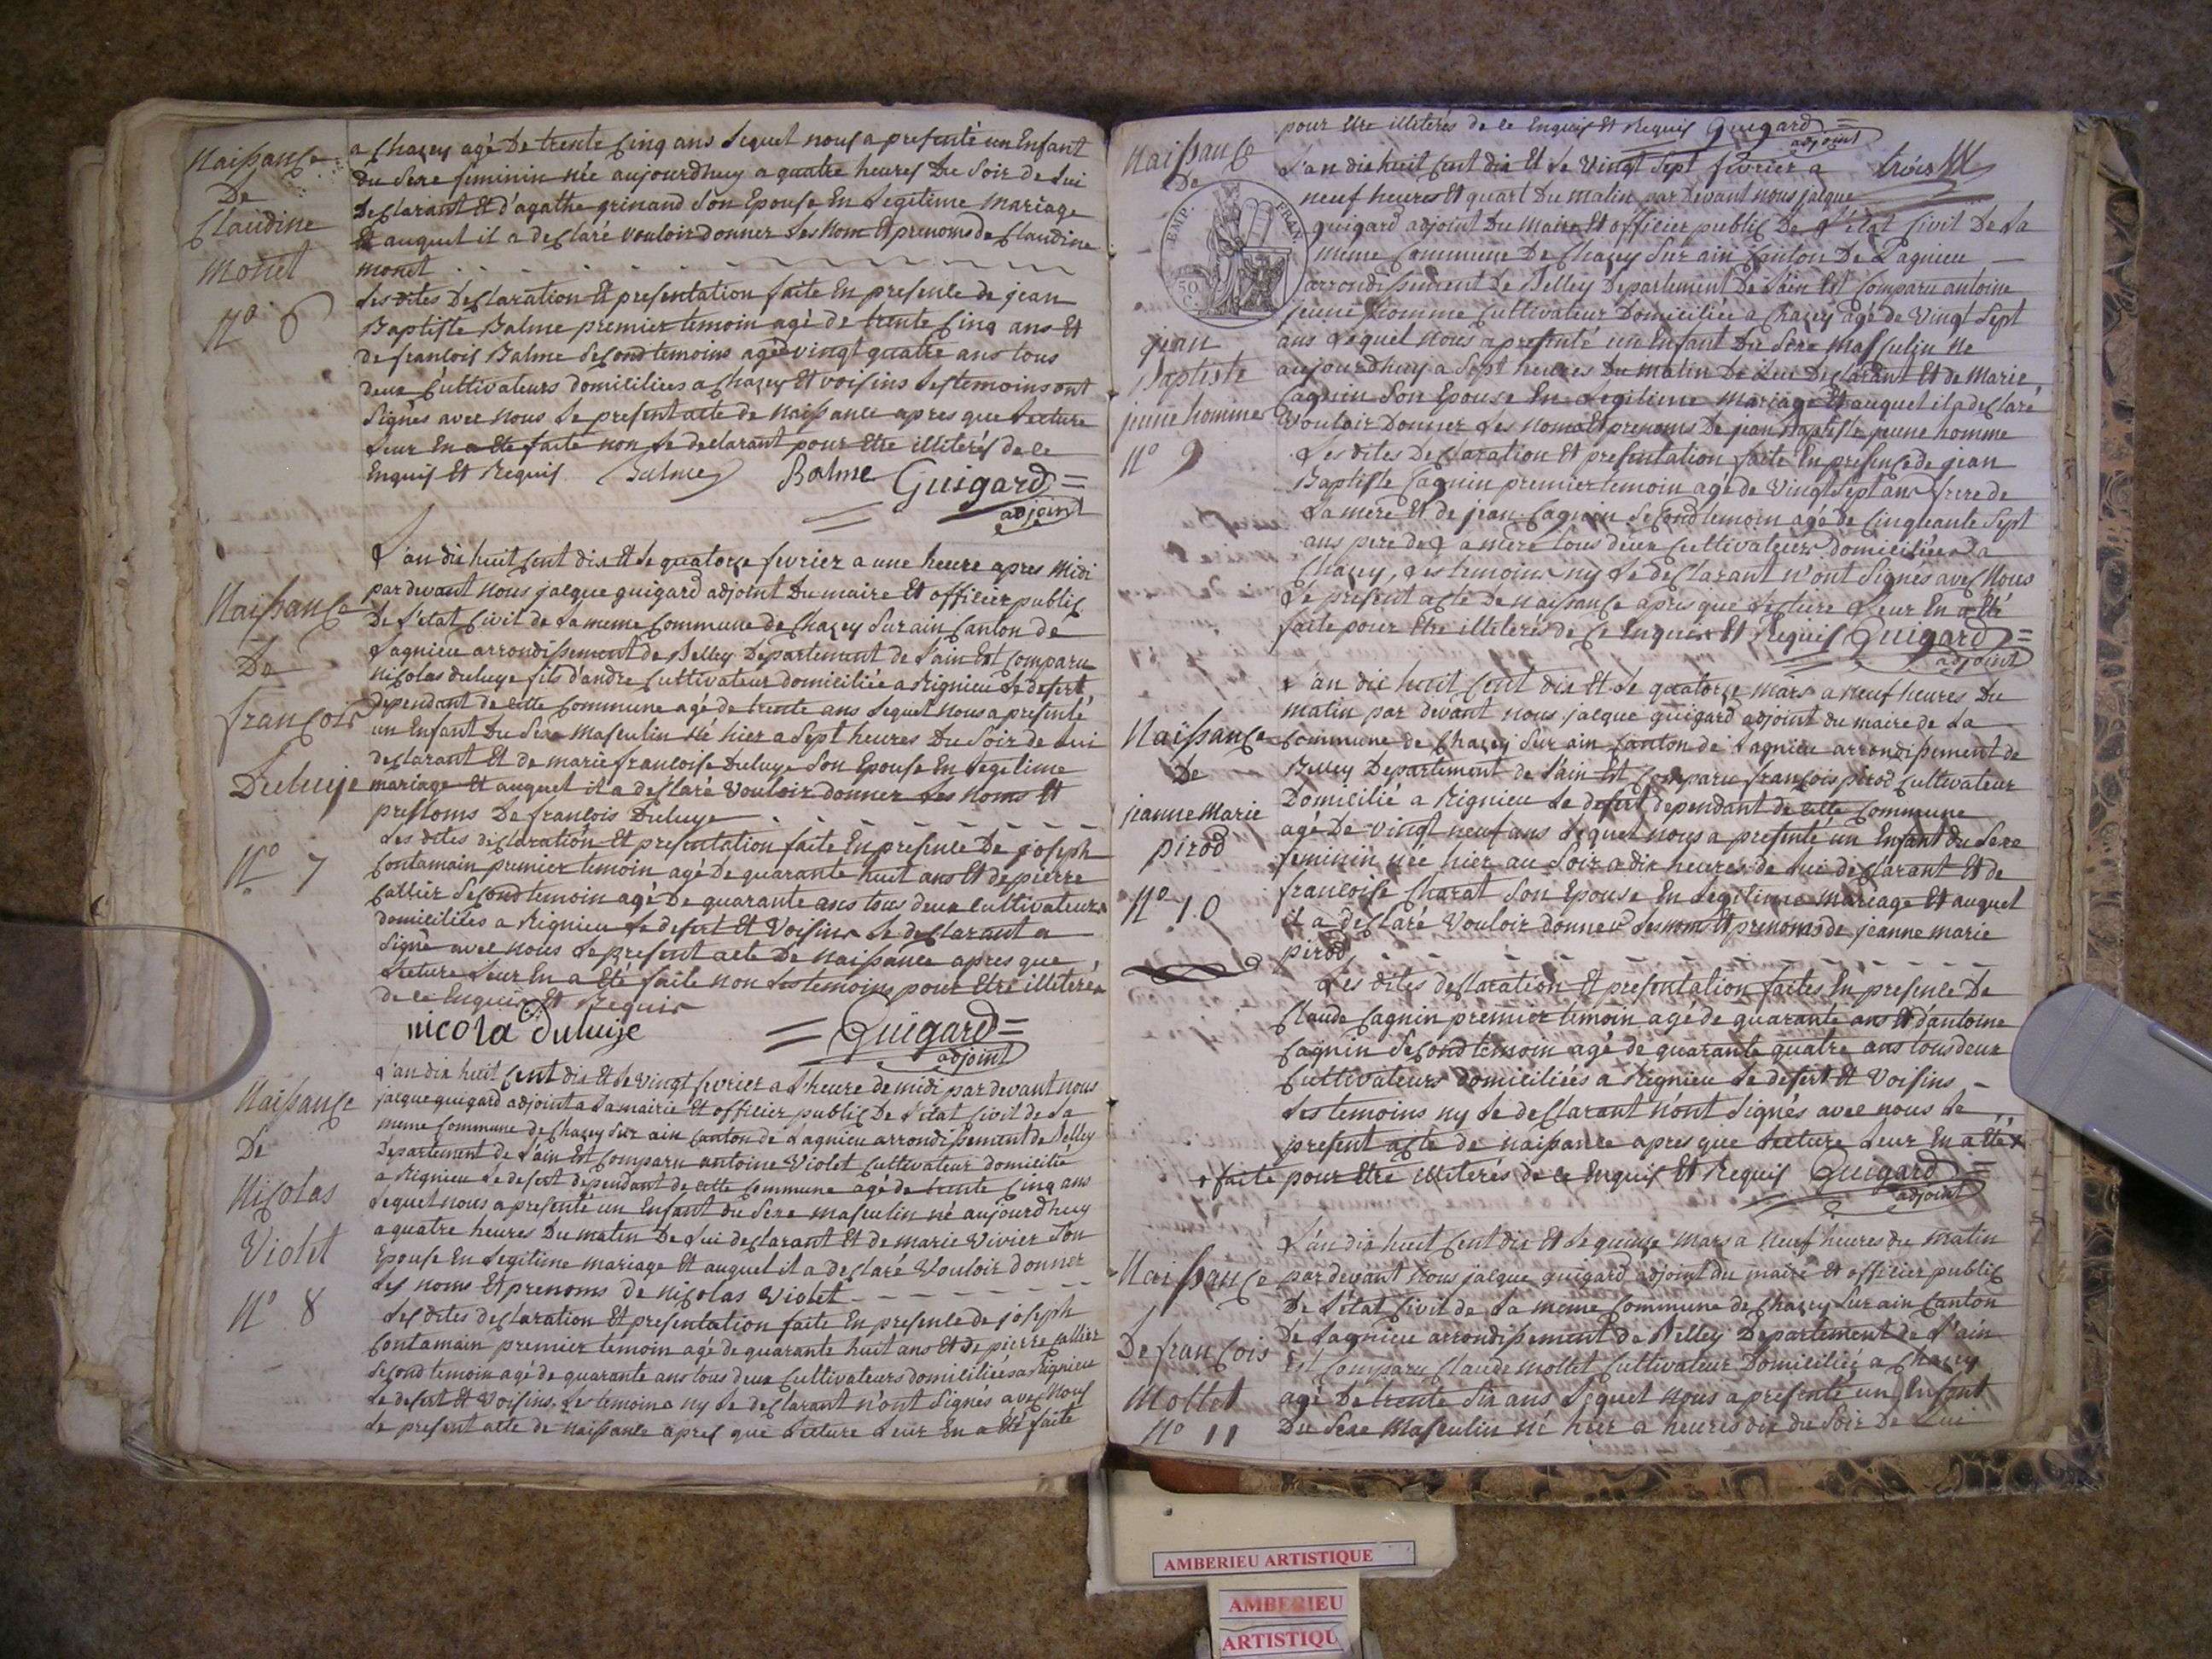 Naissance
De
Claudine
monet
N° 6
a Chazey agé De trente Cinq ans lequel nous a presenté un Enfant
du sexe feminin née aujourdhuy a quatre heures Du soir de lui
declarant Et d'agathe grinand son Epouse En legitime mariage
Et auquel il a declaré vouloir donner les Nom Et prenoms de Claudine
monet
les dites Declaration Et presentation faite En presence de jean
Baptiste Balme premier temoin agé de trente Cinq ans Et
de francois Balme second temoins agé vingt quatre ans tous
deux Cultivateurs domiciliées a Chazey Et voisins les temoins ont
signés avec nous le present acte de naissance apres que lecture
leur En a Eté faite non le declarant pour Etre illiterés de ce
Enquis Et Requis Balme Balme Guigard
adjoint
Naissance
De
francois
Duluye
N° 7
L'an dix huit Cent dix Et le quatorze fevrier a une heure apres Midi
par devant nous jacque guigard adjoint Du maire Et officier public
De l'etat Civil de la meme Commune de Chazey sur ain Canton de
Lagnieu arrondissement de Belley Departement de l'ain Est Comparu
nicolas duluye fils d'andré Cultivateur domiciliée a Rignieu le desert
dependant de cette Commune agé de trente ans lequel nous a presenté
un Enfant Du sexe Masculin Né hier a sept heures Du soir de lui
declarant Et de marie francoise Duluye son Epouse En legitime
mariage Et auquel il a declaré vouloir donner les Noms Et
prenoms De francois Duluye
Les dites declaration Et presentation faite En presence De joseph
Contamain premier temoin agé De quarante huit ans Et de pierre
Callier second temoin agé De quarante ans tous deux Cultivateurs
domiciliées a Rignieu le desert Et Voisins le declarant a
signé avec nous le present acte De naissance apres que
lecture leur En a Eté faite non les temoins pour Etre illiterés
de ce Enquis Et Requis
nicola duluije Guigard
adjoint
Naissance
De
Nicolas
Violet
N° 8
L'an dix huit Cent dix Et le vingt fevrier a l'heure de midi par devant nous
jacque guigard adjoint a la mairie Et officier public De l'etat Civil de la
meme Commune de Chazey sur ain Canton de Lagnieu arrondissement de Belley
Departement de l'ain Est Comparu antoine Violet Cultivateur domicilié
a Rignieu le desert dependant de cette Commune agé de trente Cinq ans
lequel nous a presenté un Enfant du sexe masculin né aujourdhuy
a quatre heures Du matin De lui declarant Et de marie Vivier son
Epouse En legitime mariage Et auquel il a declaré vouloir donner
les noms Et prenoms de nicolas Violet
Les dites declaration Et presentation faite En presence de joseph
Contamain premier temoin agé de quarante huit ans Et de pierre Callier
second temoin agé de quarante ans tous deux Cultivateurs domiciliées a Rignieu
le desert Et Voisins, le temoins ny le declarant n'ont signés avec Nous
le present acte de naissance apres que lecture leur En a Eté faite
pour Etre illiterés de ce Enquis Et Requis Guigard
adjoint
trois
Naissance
De
EMP. FRAN.
50 C.
jean
Baptiste
jeune homme
N° 9
L'an dix huit Cent dix Et le Vingt sept fevrier a
neuf heures Et quart Du matin par Devant nous jacque
guigard adjoint Du Maire Et officier public De l'état Civil De la
meme Commune De Chazey sur ain Canton De Lagnieu
arrondissement De Belley Departement De l'ain Est Comparu antoine
jeune homme Cultivateur Domiciliée a Chazey agé de Vingt sept
ans lequel nous a presenté un Enfant Du sexe masculin Ne
aujourdhuy a sept heures Du matin De lui Declarant Et de Marie
Cagnin son Epouse En legitime Mariage Et auquel il a declaré
Vouloir Donner les noms Et prenoms De jean Baptiste jeune homme
Les dites Declaration Et presentation faite En presence de jean
Baptiste Cagnin premier temoin agé de Vingt sept ans frere de
la mere Et de jean Cagnin second temoin agé de Cinqueante sept
ans pere de la mere tous deux Cultivateurs domiciliées a
Chazey, les temoins ny le declarant n'ont signés avec Nous
le present acte De naissance apres que lecture leur En a Eté
faite pour Etre illiterés de Ce Enquis Et Requis Guigard
adjoint
Naissance
De
jeanne Marie
pirod
N° 10
L'an dix huit Cent dix Et le quatorze mars a neuf heures du
matin par devant nous jacque guigard adjoint du maire de la
Commune de Chazey sur ain Canton de Lagnieu arrondissement de
Belley Departement de l'ain Est Comparu francois pirod Cultivateur
Domicilié a Rignieu le desert dependant de cette Commune
agé De vingt neuf ans lequel nous a presenté un Enfant du sexe
feminin née hier au soir a dix heures de lui declarant Et de
francoise Charat son Epouse En legitime mariage Et auquel
il a declaré Vouloir donner les nom Et prenoms de jeanne marie
pirod
Les dites declaration Et presentation faites En presence De
Claude Cagnin premier temoin agé de quarante ans Et d'antoine
Cagnin second temoin agé de quarante quatre ans tous deux
Cultivateurs domiciliées a Rignieu le desert Et Voisins
les temoins ny le declarant n'ont signés avec nous le
present acte de naissance apres que lecture leur En a Eté
faite pour Etre illiterés de ce Enquis Et Requis Guigard
adjoint
Naissance
De francois
Mottet
N° 11
L'an dix huit Cent dix Et le quinze Mars a Neuf heures du matin
par devant nous jacque guigard adjoint du maire Et officier public
De l'etat Civil de la meme Commune de Chazey sur ain Canton
De Lagnieu arrondissement de Belley Departement de l'ain
Est Comparu Claude mottet Cultivateur Domiciliée a Chazey
agé De trente six ans lequel nous a presenté un Enfant
Du sexe Masculin Né hier a heures dix du soir De Lui
AMBERIEU ARTISTIQUE
AMBERIEU
ARTISTIQU